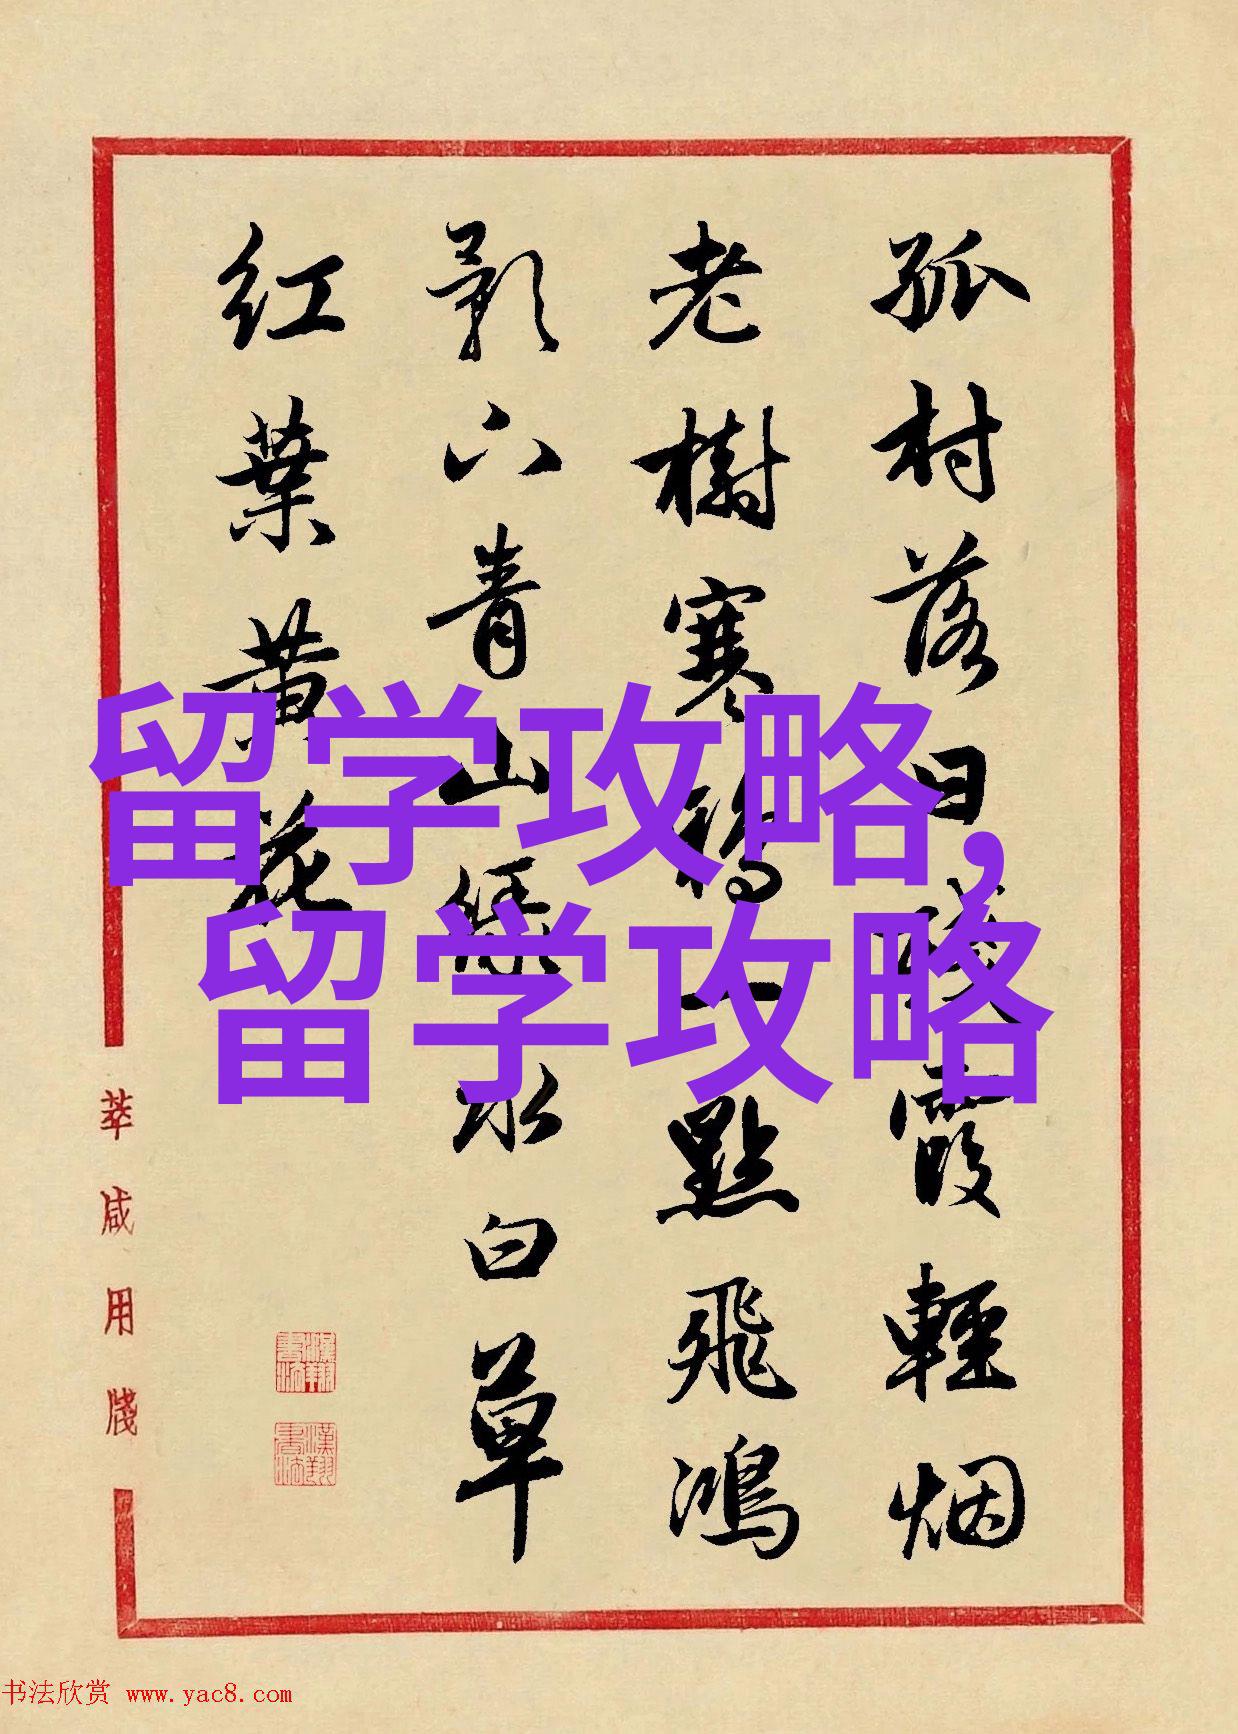 孤村落日残霞輕烟
老樹寒鸦一點飛鴻
影下青山緑水白草
紅葉黄花
莘咸用牋
留学攻略,
留学攻略
书法欣赏 www.yac8.com